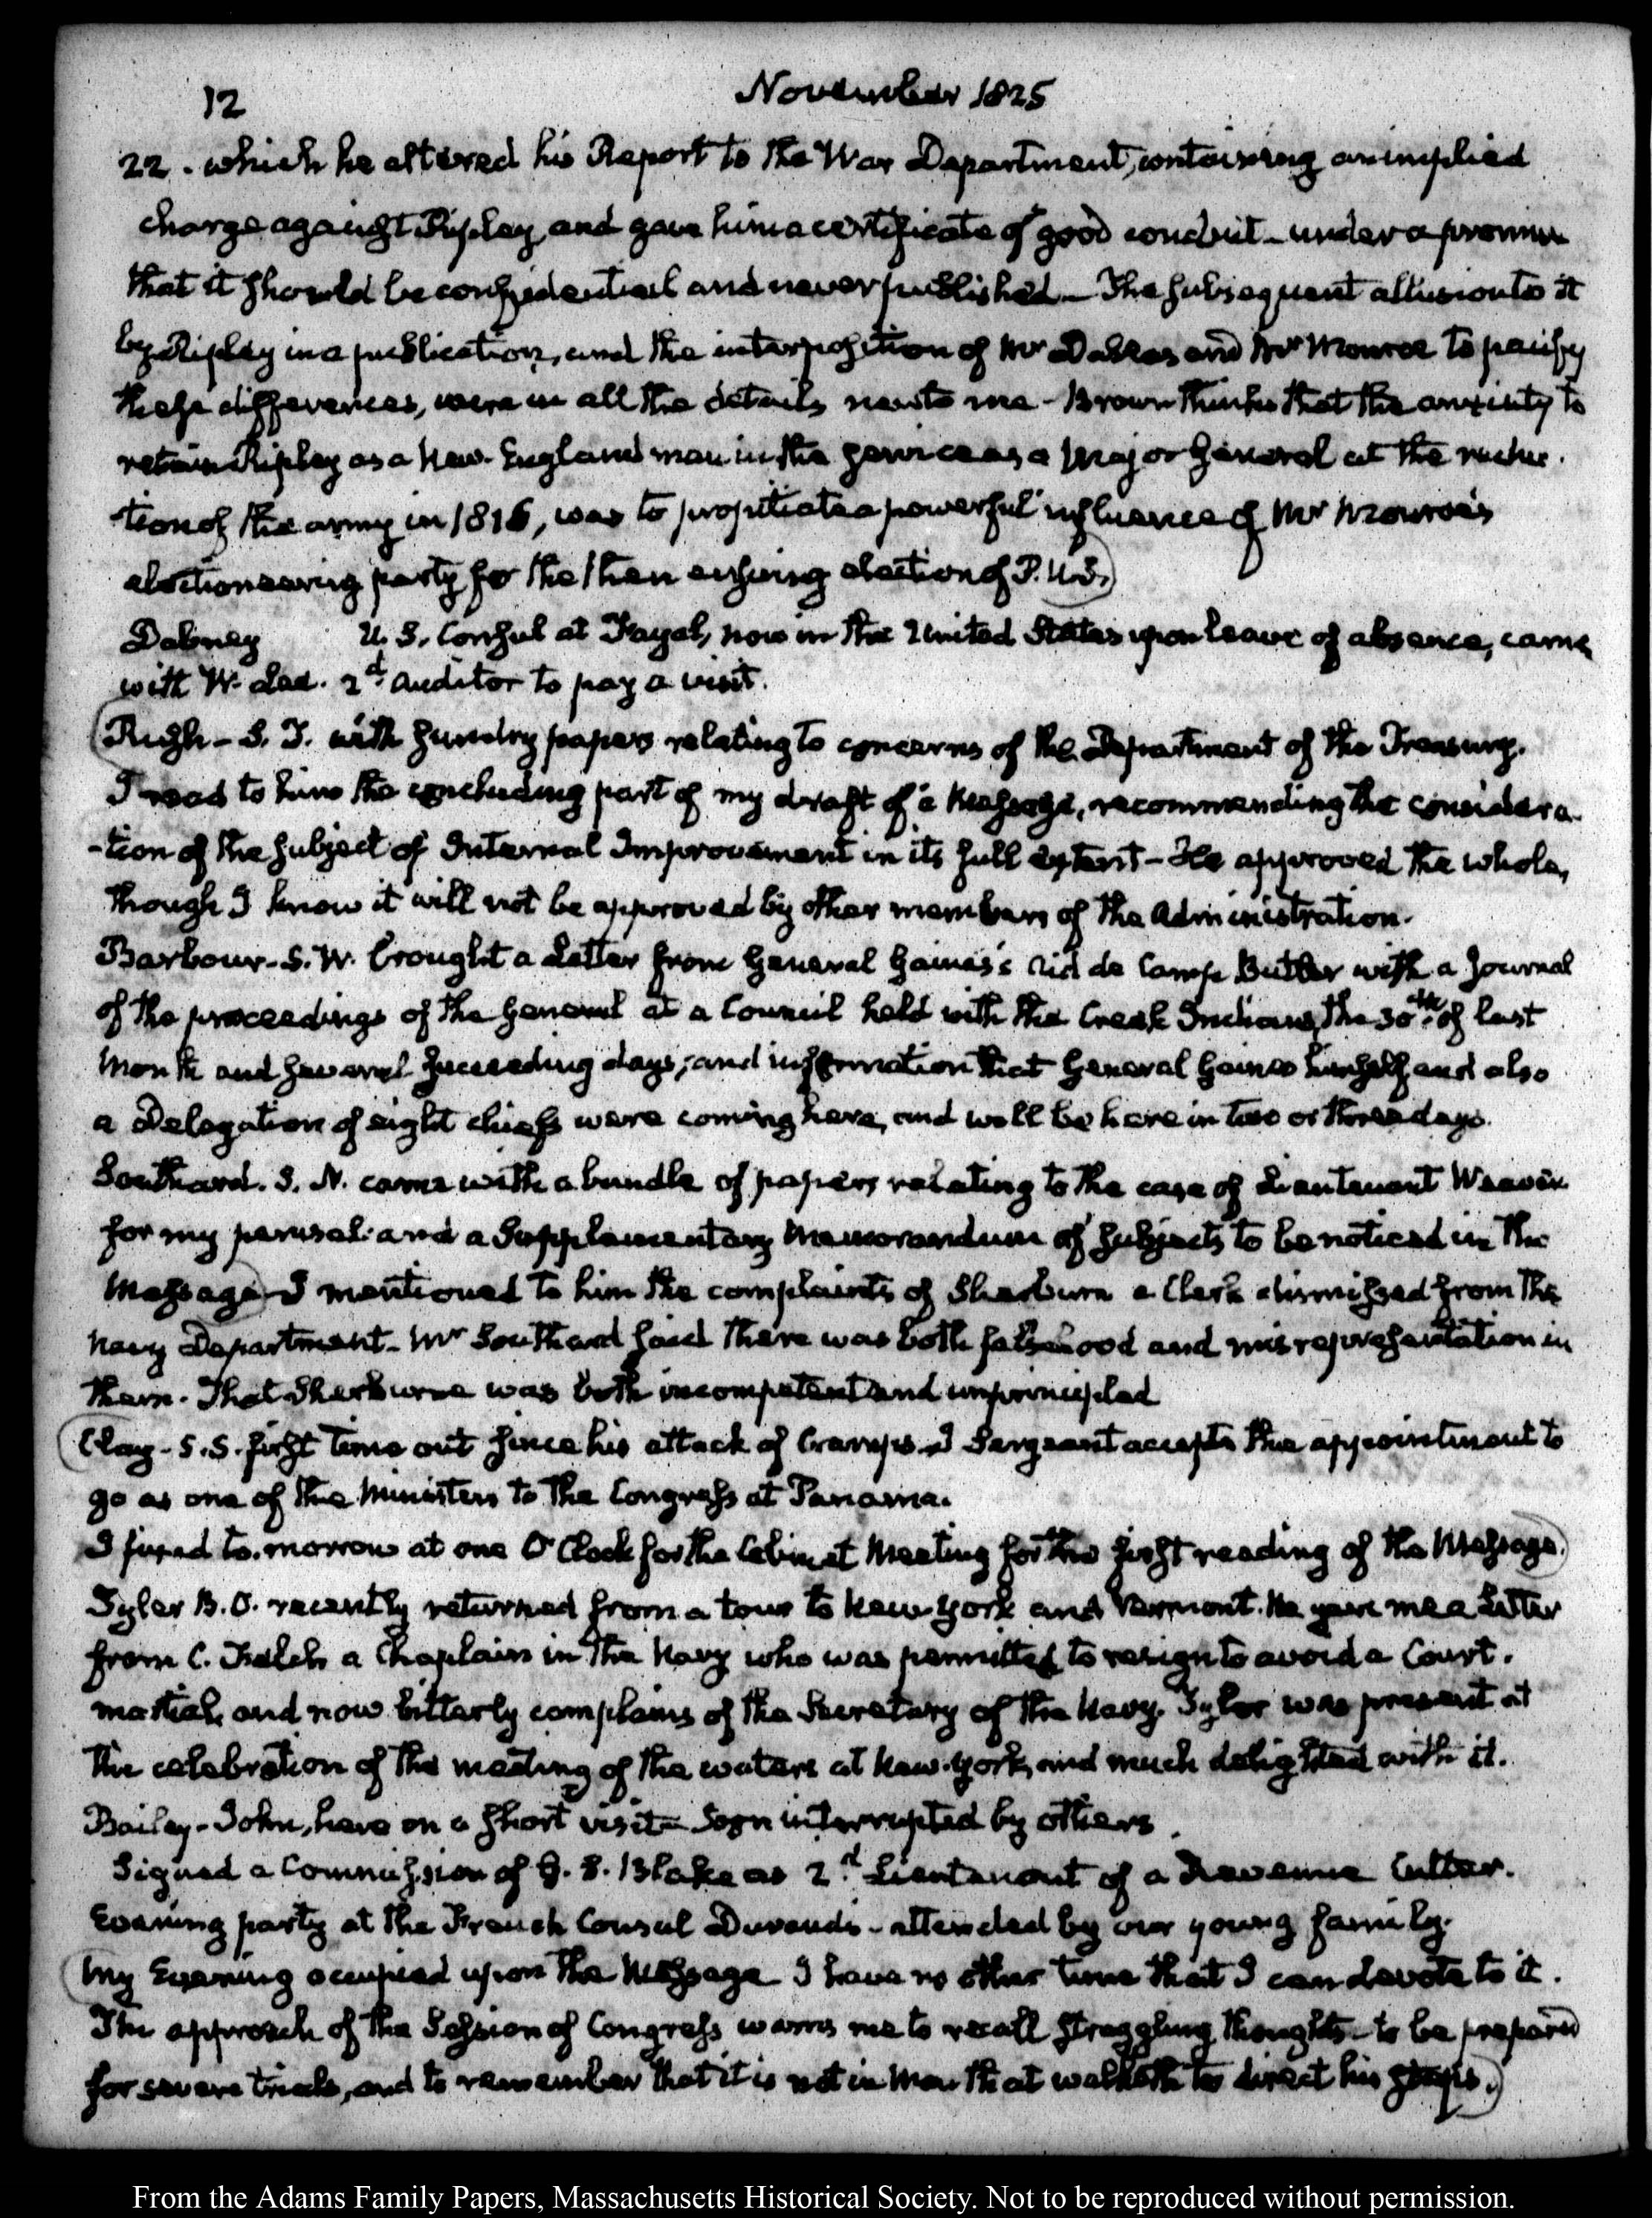 12
November 1825
22. which he altered his Report to the War Department, containing an implied
charge against Ripley, and gave him a certificate of good conduct - under a promise
that it should be confidential and never published - The subsequent allusion to it
by Ripley in a publication, and the interposition of Mr Dallas and Mr Monroe to pacify
these differences, were in all the details new to me - Brown thinks that the anxiety to
retain Ripley as a New-England man in the service as a Major General at the reduc-
tion of the army in 1816, was to propitiate a powerful influence of Mr Monroe's
electioneering party for the then ensuing election of P. U.S.
Dabney U. S. Consul at Fayal, now in the United States upon leave of absence, came
with W. Lee. 2d Auditor to pay a visit.
Rush - S. T. with sundry papers relating to concerns of the Department of the Treasury.
I read to him the concluding part of my draft of a Message, recommending the considera-
-tion of the subject of Internal Improvement in its full extent - He approved the whole,
though I know it will not be approved by other members of the Administration.
Barbour - S. W. brought a Letter from General Gaines's Aid de Camp Butler with a Journal
of the proceedings of the General at a Council held with the Creek Indians, the 30th of last
Month and several succeeding days; and information that General Gaines himself and also
a Delegation of eight chiefs were coming here, and will be here in two or three days.
Southard. S. N. came with a bundle of papers relating to the case of Lieutenant Weaver
for my perusal and a Supplementary Memorandum of subjects to be noticed in the
Message - I mentioned to him the complaints of Sherburn a Clerk dismissed from the
Navy Department - Mr Southard said there was both falsehood and misrepresentation in
them. That Sherburne was both incompetent and unprincipled
Clay - S. S. first time out since his attack of Cramps - J Sergeant accepts the appointment to
go as one of the Ministers to the Congress at Panama.
I fixed to-morrow at one O'Clock for the Cabinet Meeting for the first reading of the Message.
Tyler B. O. recently returned from a tour to New-York and Vermont. He gave me a Letter
from C. Felch a Chaplain in the Navy who was permitted to resign to avoid a Court-
martial, and now bitterly complains of the Secretary of the Navy. Tyler was present at
the celebration of the meeting of the waters at New-York, and much delighted with it.
Bailey - John, here on a short visit - Soon interrupted by others.
Signed a Commission of G. S. Blake as 2d Lieutenant of a Revenue Cutter.
Evening party at the French Consul Durand's - attended by our young family.
My Evening occupied upon the Message I have no other time that I can devote to it.
The approach of the Session of Congress warns me to recall straggling thoughts - to be prepared
for severe trials, and to remember that it is not in Man that walketh to direct his steps.
From the Adams Family Papers, Massachusetts Historical Society. Not to be reproduced without permission.